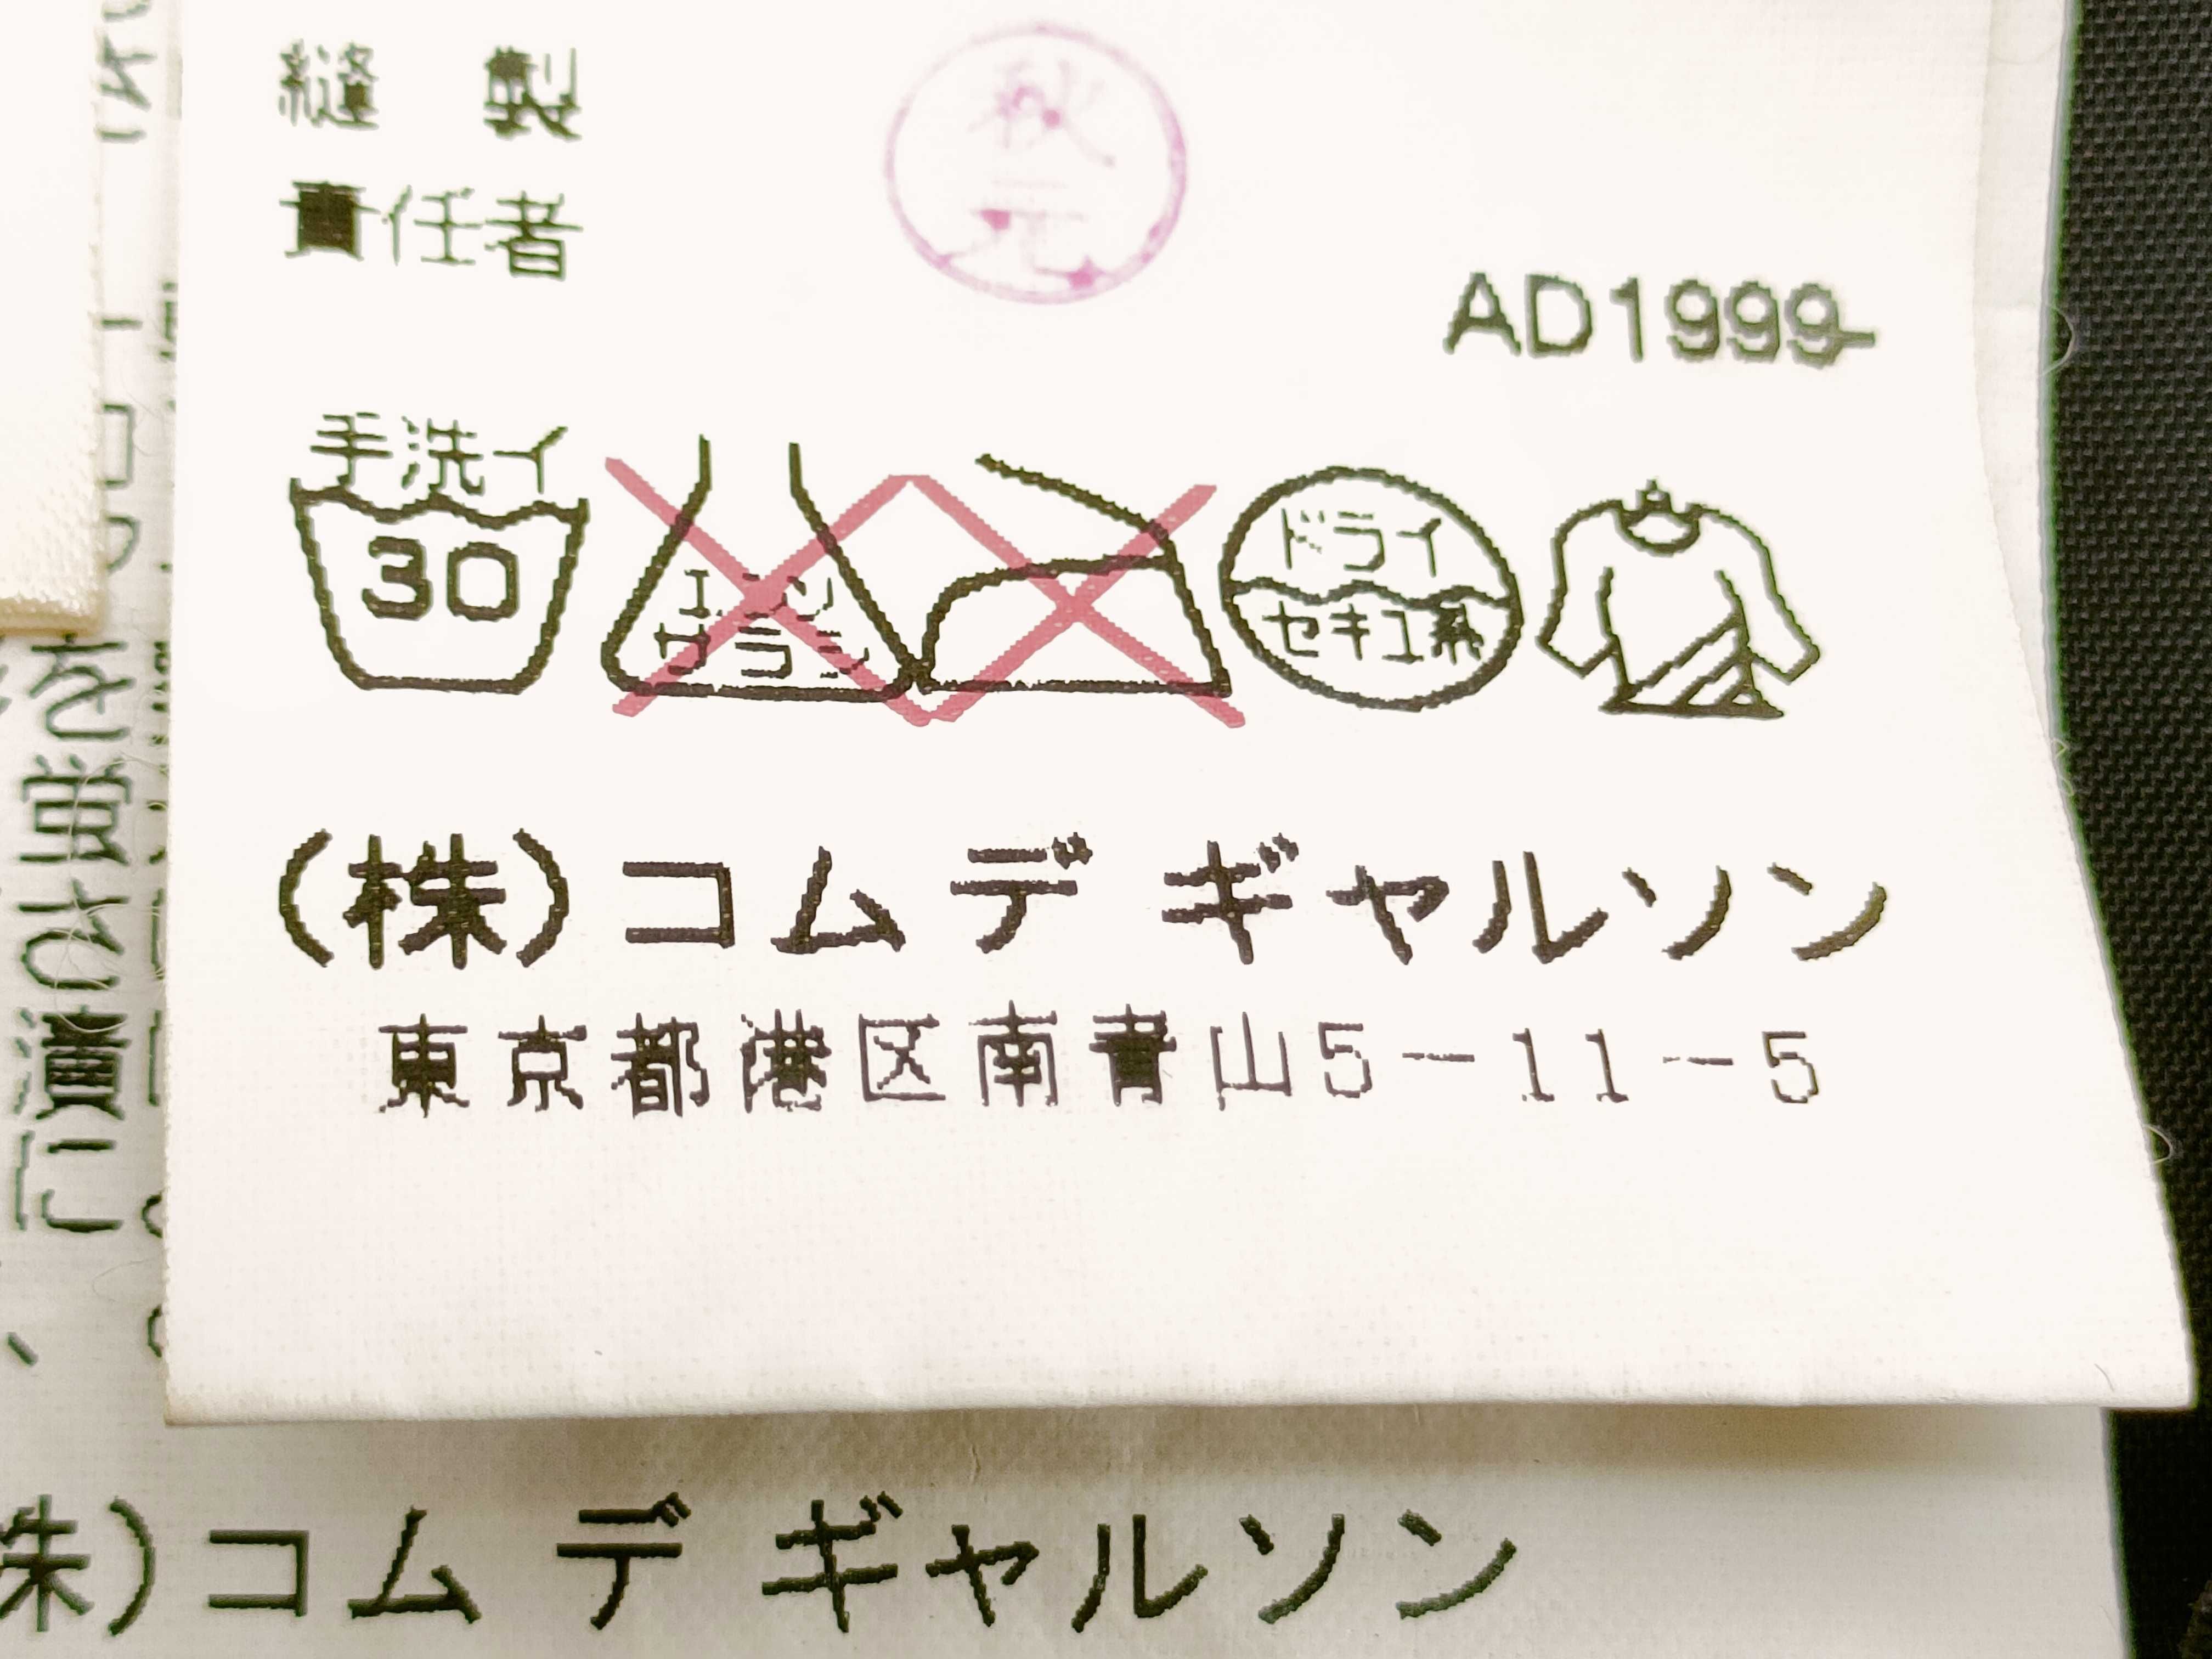 縫製
責任者
秋元
AD1999
手洗イ
30
エンソ
サラシ
ドライ
セキユ系
(株)コム デ ギャルソン
東京都港区南青山5-11-5
株)コム デ ギャルソン